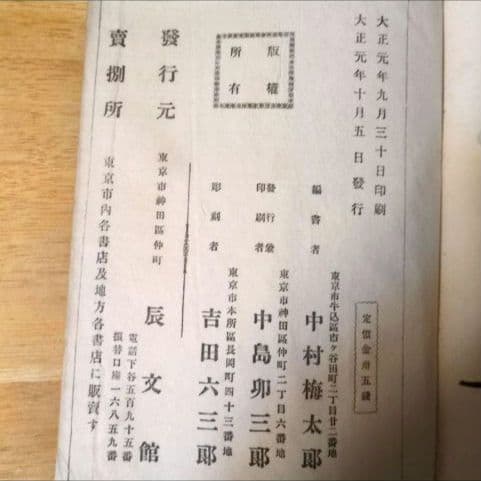 大正元年九月三十日印刷
大正元年十月五日發行
定價金卅五錢
版權
所有
編書者
東京市牛込區市ヶ谷田町二丁目廿二番地
中村梅太郎
發行兼
印刷者
東京市神田區仲町二丁目六番地
中島卯三郎
彫刻者
東京市本所區長岡町四十三番地
吉田六三郎
發行元
東京市神田區仲町
辰文館
電話下谷五百九十五番
振替口座一六八五九番
賣捌所
東京市內各書店及地方各書店に販賣す